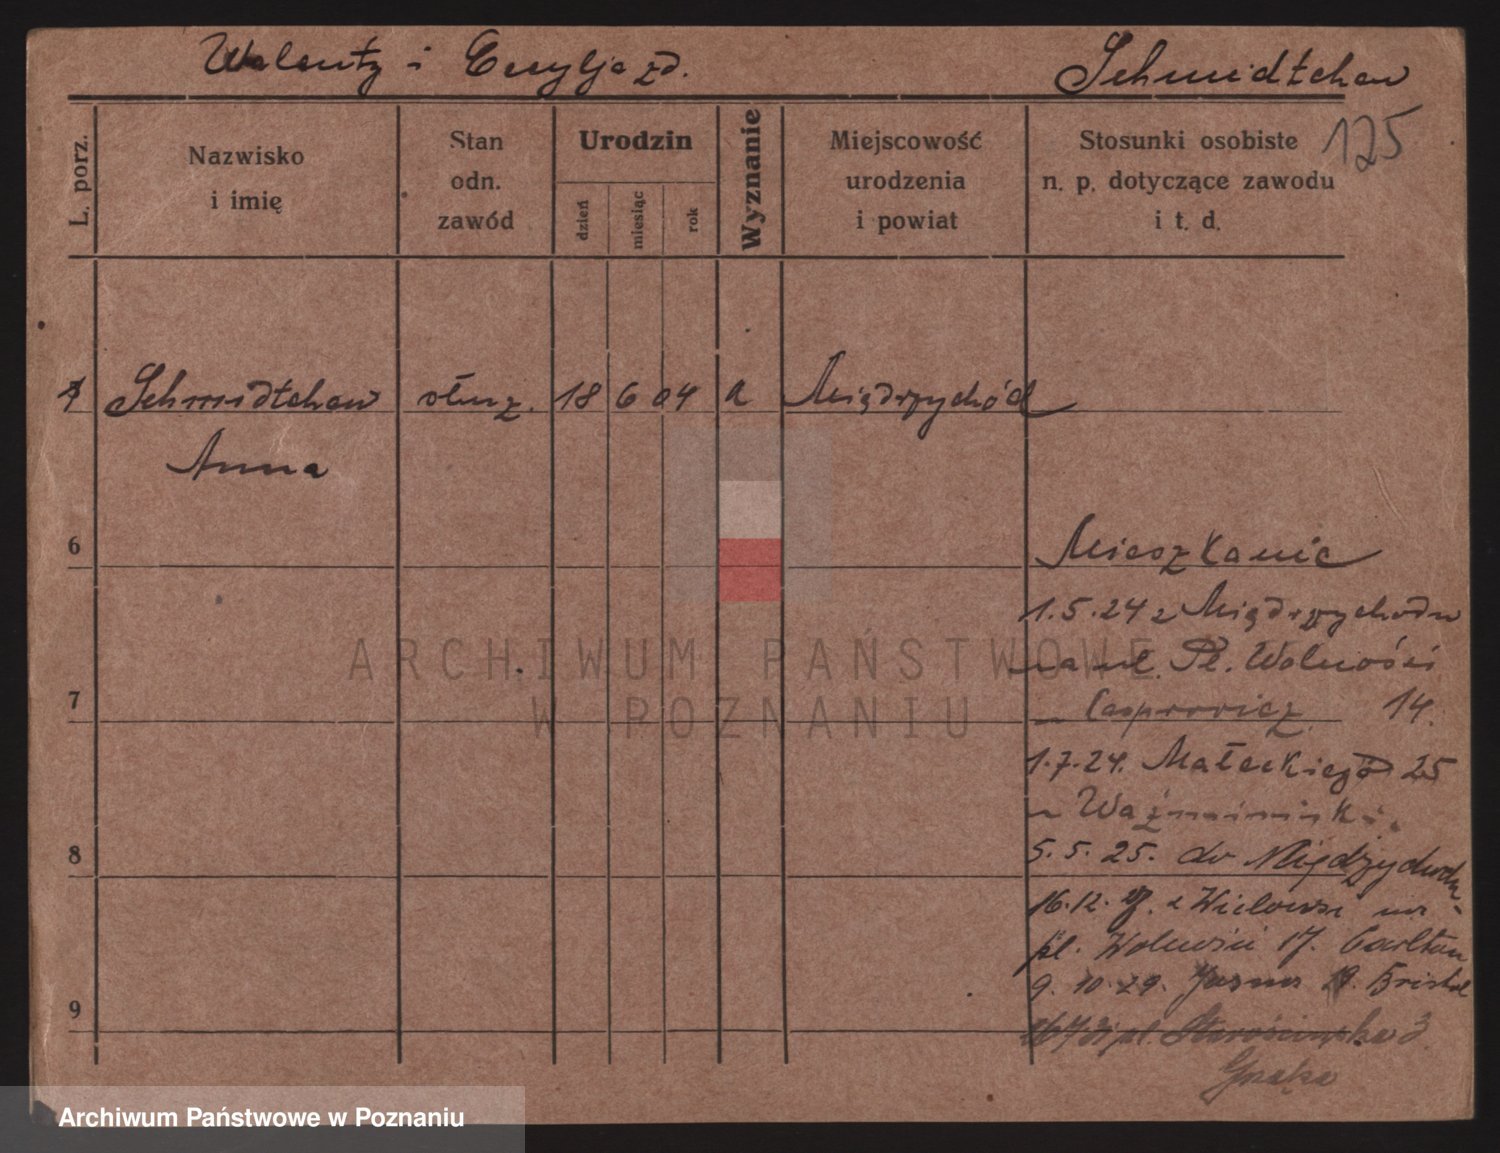 Walenty i Emylja zd. Schmidtchen
125
L. porz.
Nazwisko
i imię
Stan
odn.
zawód
Urodzin
dzień
miesiąc
rok
Wyznanie
Miejscowość
urodzenia
i powiat
Stosunki osobiste
n. p. dotyczące zawodu
i t. d.
Schmidtchen służ. 18 6 04 a Międzychód
Anna
6
Mieszkanie
1.5.24 z Międzychodu
na ul. Pl. Wolności
7
14.
1.7.24. Małeckiego 25
8
5.5.25. do Międzychodu
16.12. z na
pl. Wolności 17. Carlton
9.10.29. Bristol
9
3
ARCHIWUM PAŃSTWOWE
W POZNANIU
Archiwum Państwowe w Poznaniu